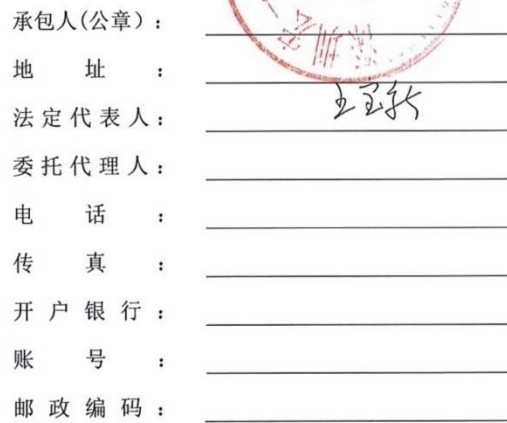 承包人(公章）：
地址：
法定代表人：王宝新
委托代理人：
电话：
传真：
开户银行：
账号：
邮政编码：